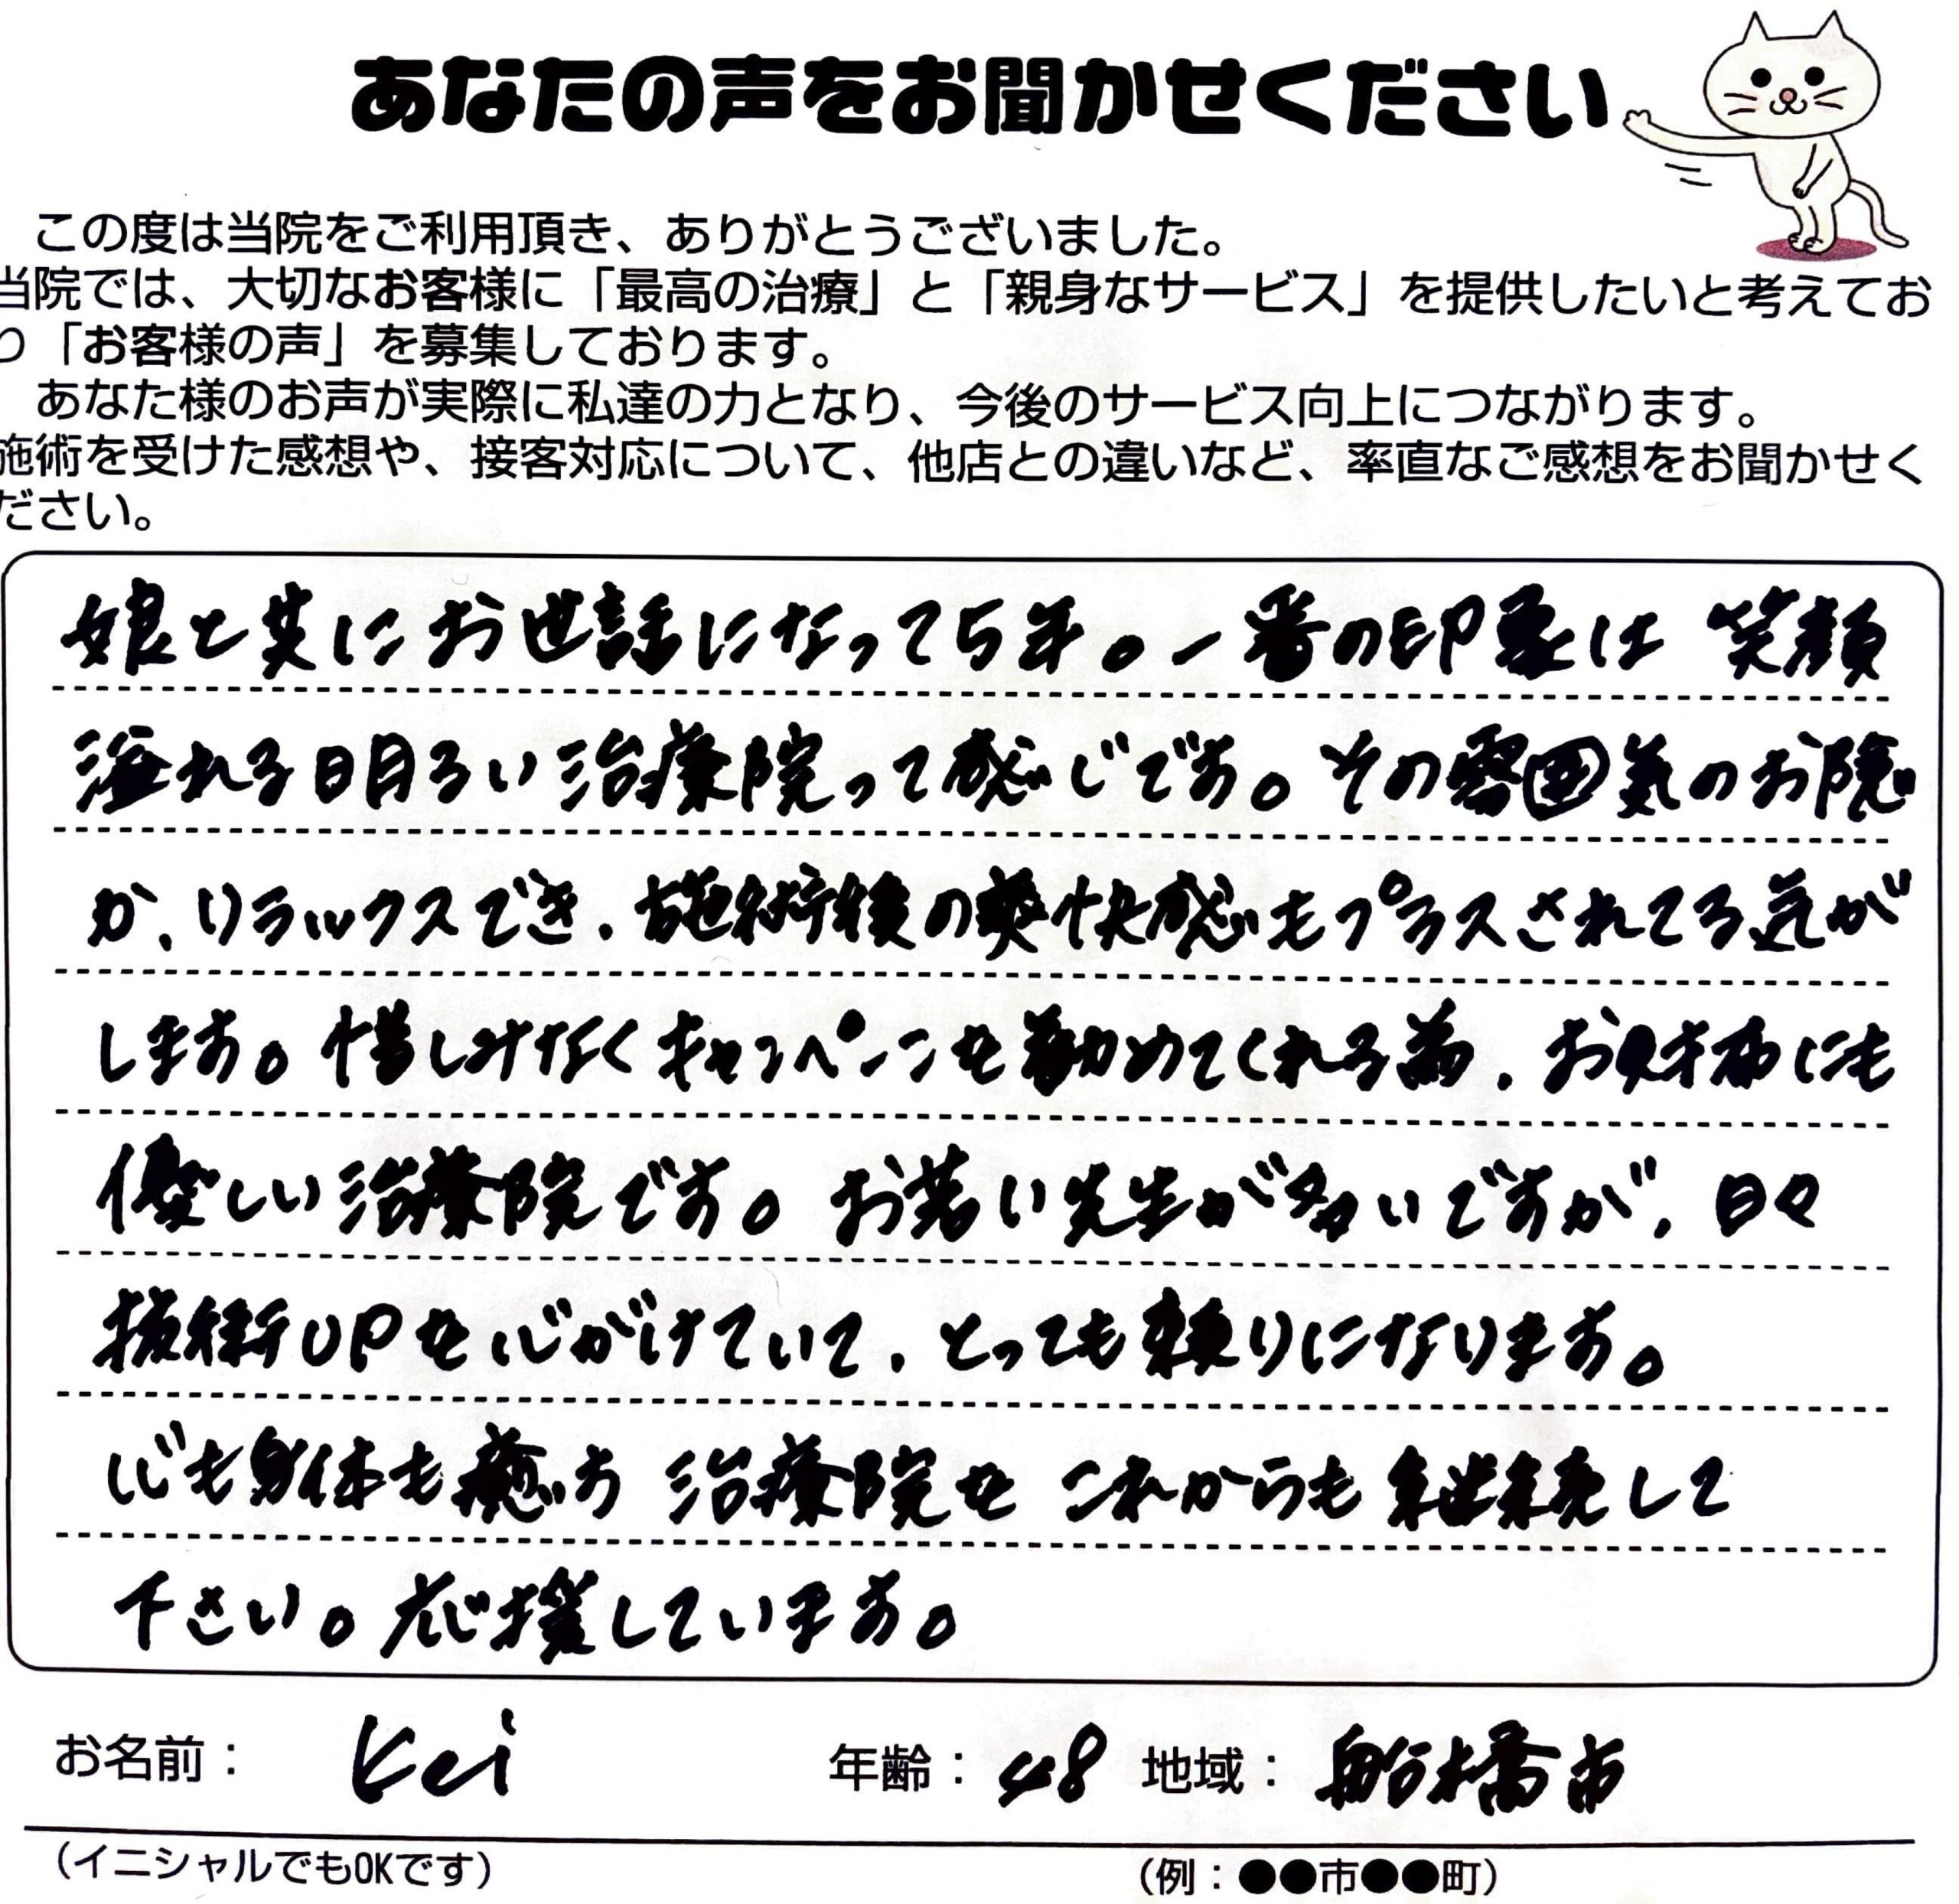 あなたの声をお聞かせください
この度は当院をご利用頂き、ありがとうございました。
当院では、大切なお客様に「最高の治療」と「親身なサービス」を提供したいと考えてお
り「お客様の声」を募集しております。
あなた様のお声が実際に私達の力となり、今後のサービス向上につながります。
施術を受けた感想や、接客対応について、他店との違いなど、率直なご感想をお聞かせく
ださい。
娘と共にお世話になって5年。一番の印象は 笑顔
溢れる明るい治療院って感じです。その雰囲気のお陰
か、リラックスでき、施術後の爽快感もプラスされてる気が
します。惜しみなくキャンペーンを勧めてくれる為、お財布にも
優しい治療院です。お若い先生が多いですが、日々
技術UPを心がけていて、とっても頼りになります。
心も身体も癒す 治療院を これからも継続して
下さい。応援しています。
お名前： Kei 年齢：48 地域：船橋市
（イニシャルでもOKです） （例：●●市●●町）